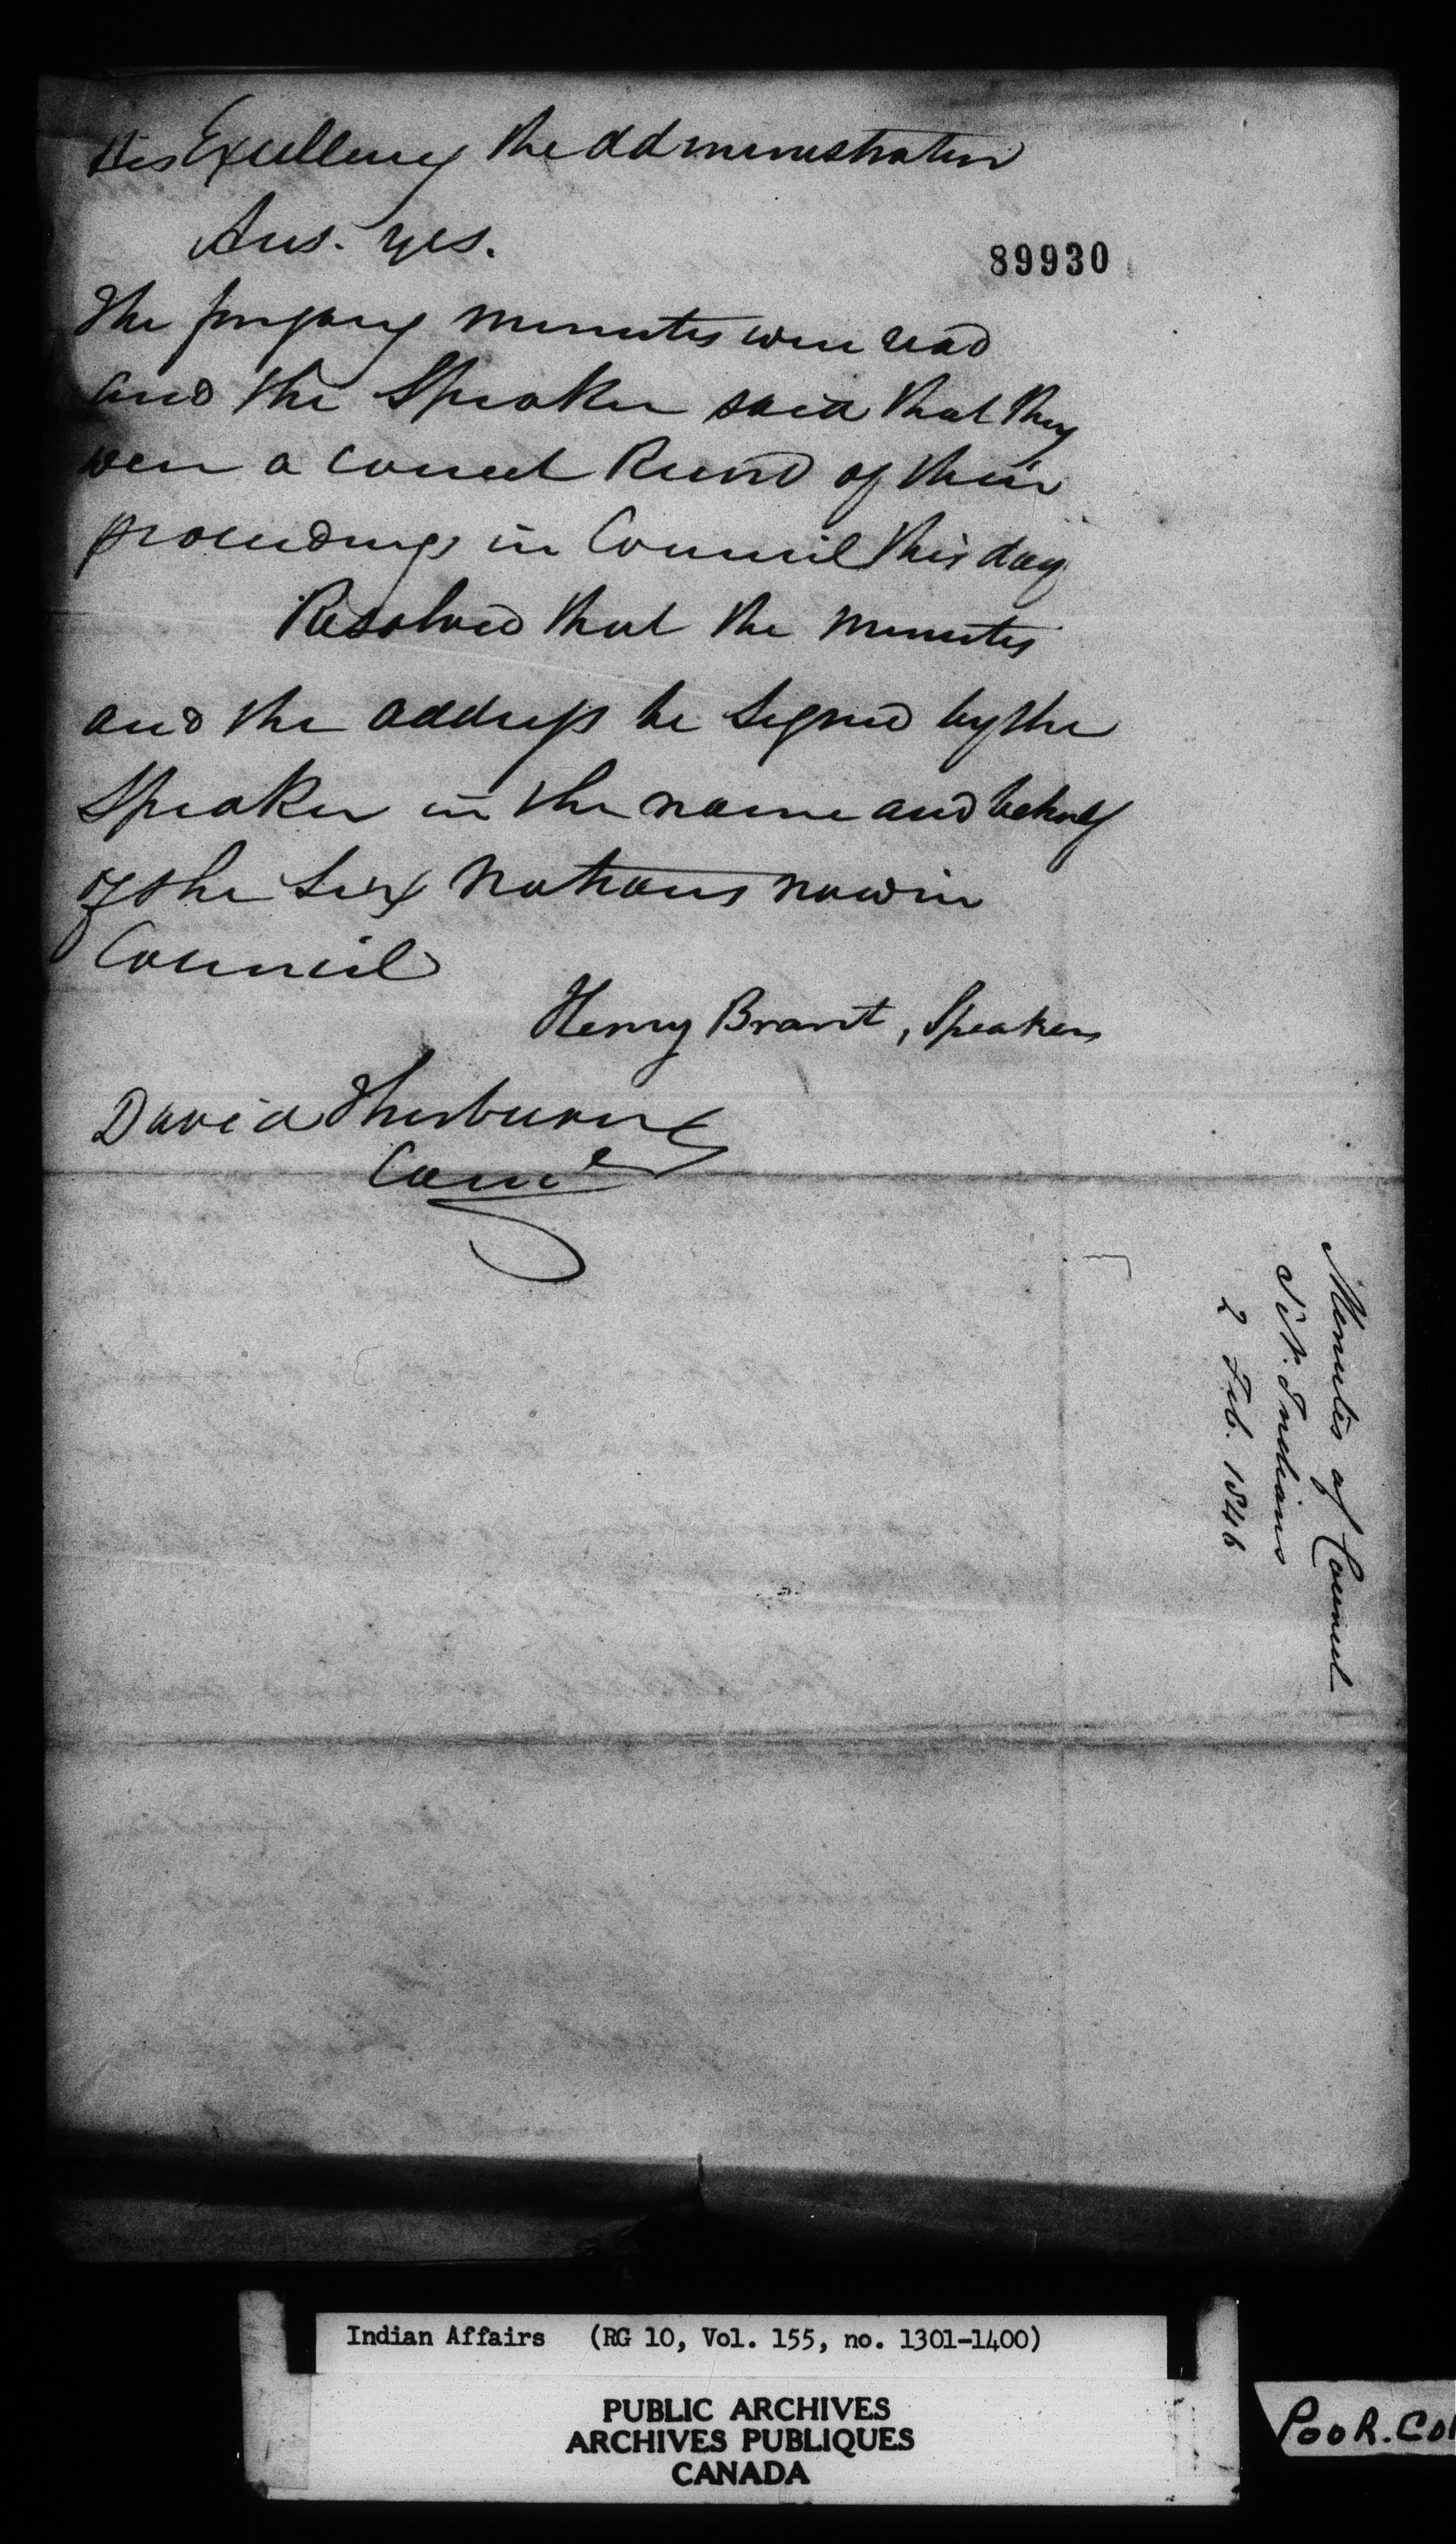 His Excellency the Administrator
Ans. Yes.
89930
The foregoing minutes were read
and the Speaker said that they
were a correct Record of their
proceedings in Council this day
Resolved that the minutes
and the address be signed by the
Speaker in the name and behalf
of the Six Nations now in
Council
Henry Brant, Speaker
David Thorburn
Comr
Minutes of Council
S. N. Indians
2 Feb. 1846
Indian Affairs (RG 10, Vol. 155, no. 1301-1400)
PUBLIC ARCHIVES
ARCHIVES PUBLIQUES
CANADA
POOR.CO